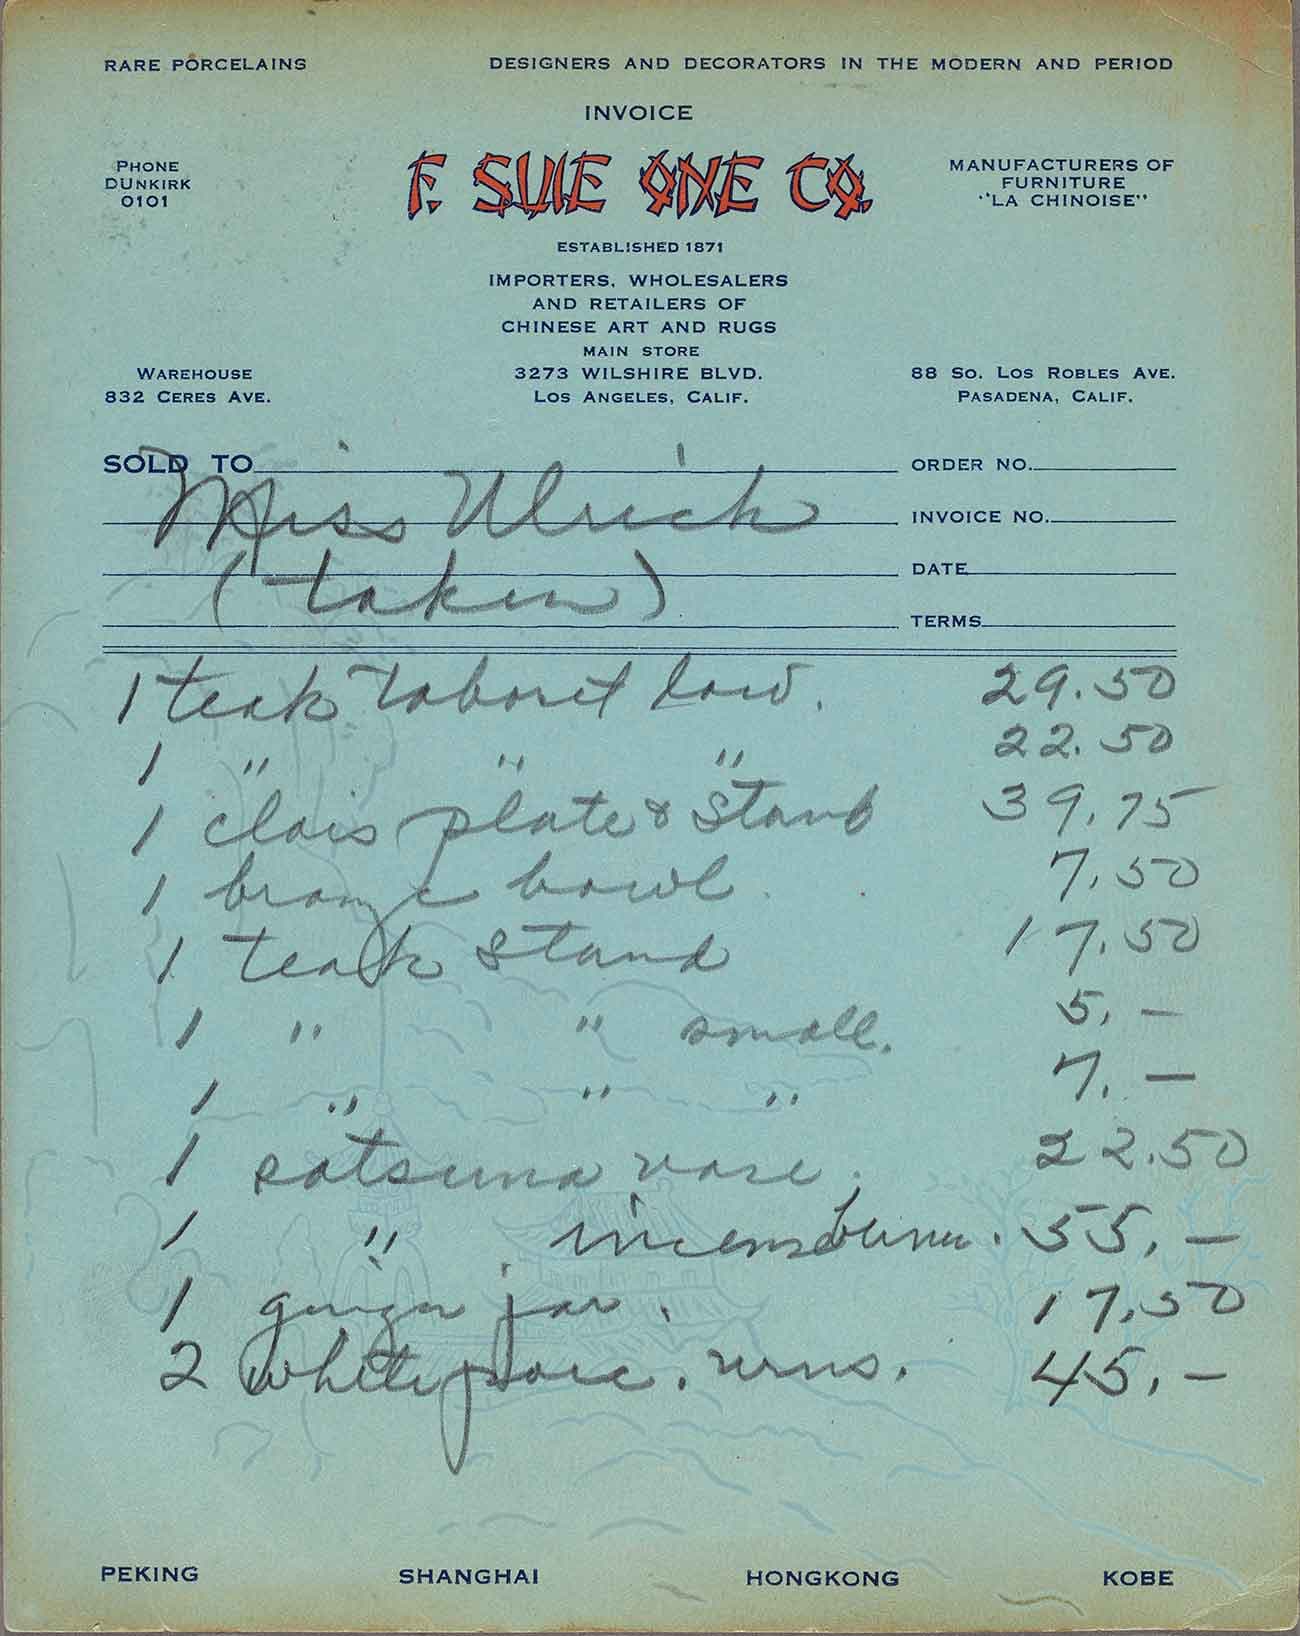 RARE PORCELAINS DESIGNERS AND DECORATORS IN THE MODERN AND PERIOD
INVOICE
F. SUIE ONE CO.
PHONE
DUNKIRK
0101
MANUFACTURERS OF
FURNITURE
"LA CHINOISE"
ESTABLISHED 1871
IMPORTERS, WHOLESALERS
AND RETAILERS OF
CHINESE ART AND RUGS
MAIN STORE
3273 WILSHIRE BLVD.
LOS ANGELES, CALIF.
WAREHOUSE
832 CERES AVE.
88 SO. LOS ROBLES AVE.
PASADENA, CALIF.
SOLD TO Miss Ulrich
(taken)
ORDER NO.
INVOICE NO.
DATE
TERMS
1 teak taboret low. 29.50
1 " " " 22.50
1 clois plate & stand 39.75
1 bronze bowl 7.50
1 teak stand 17.50
1 " " small. 5.-
1 " " " 7.-
1 satsuma vase. 22.50
1 " incense burner. 55.-
1 ginger jar. 17.50
2 white porc. urns. 45.-
PEKING SHANGHAI HONGKONG KOBE